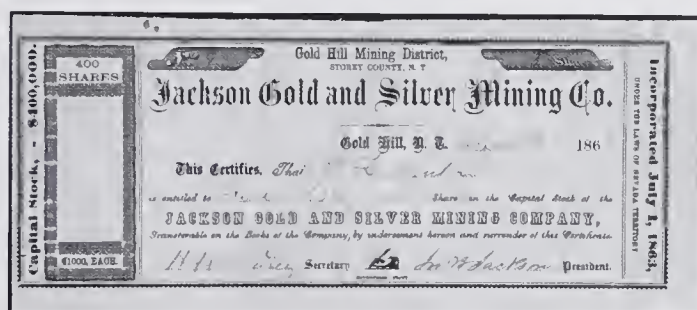 Capital Stock, - $400,000.
400
SHARES
$1000, EACH.
Gold Hill Mining District,
STOREY COUNTY, N. T.
Jackson Gold and Silver Mining Co.
Gold Hill, N. T. 186
This Certifies, That
is entitled to Share in the Capital Stock of the
JACKSON GOLD AND SILVER MINING COMPANY,
Transferable on the Books of the Company, by endorsement hereon and surrender of this Certificate.
Secretary Jackson President.
Incorporated July 1, 1863,
UNDER THE LAWS OF NEVADA TERRITORY